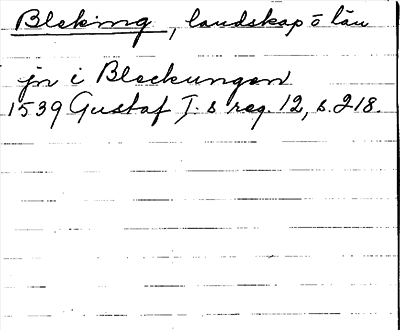 Bleking, landskap o län
jn i Bleckungen
1539 Gustaf I.s reg. 12, s. 218.